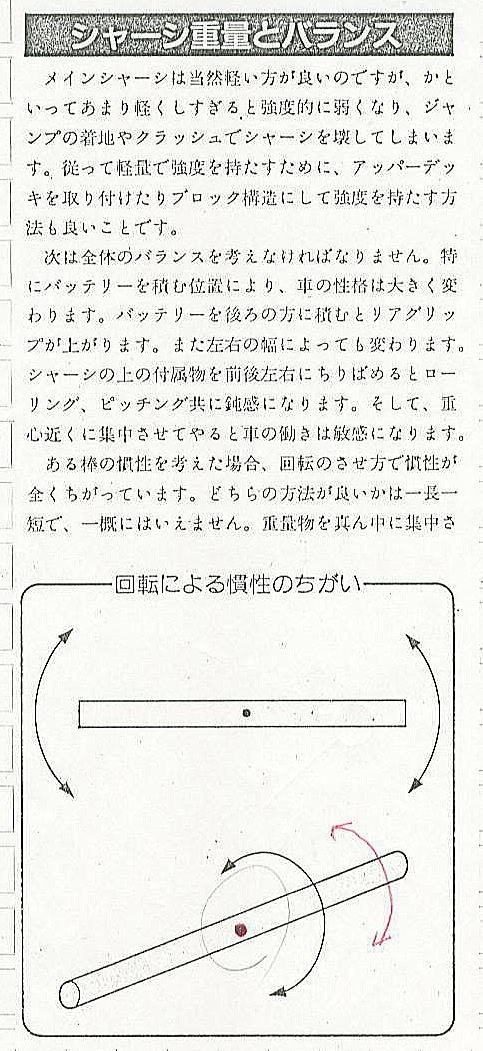 シャーシ重量とバランス
メインシャーシは当然軽い方が良いのですが、かと
いってあまり軽くしすぎると強度的に弱くなり、ジャ
ンプの着地やクラッシュでシャーシを壊してしまいま
す。従って軽量で強度を持たすために、アッパーデッ
キを取り付けたりブロック構造にして強度を持たす方
法も良いことです。
次は全体のバランスを考えなければなりません。特
にバッテリーを積む位置により、車の性格は大きく変
わります。バッテリーを後ろの方に積むとリアグリッ
プが上がります。また左右の幅によっても変わります。
シャーシの上の付属物を前後左右にちりばめるとロー
リング、ピッチング共に鈍感になります。そして、重
心近くに集中させてやると車の働きは敏感になります。
ある棒の慣性を考えた場合、回転のさせ方で慣性が
全くちがっています。どちらの方法が良いかは一長一
短で、一概にはいえません。重量物を真ん中に集中さ
回転による慣性のちがい